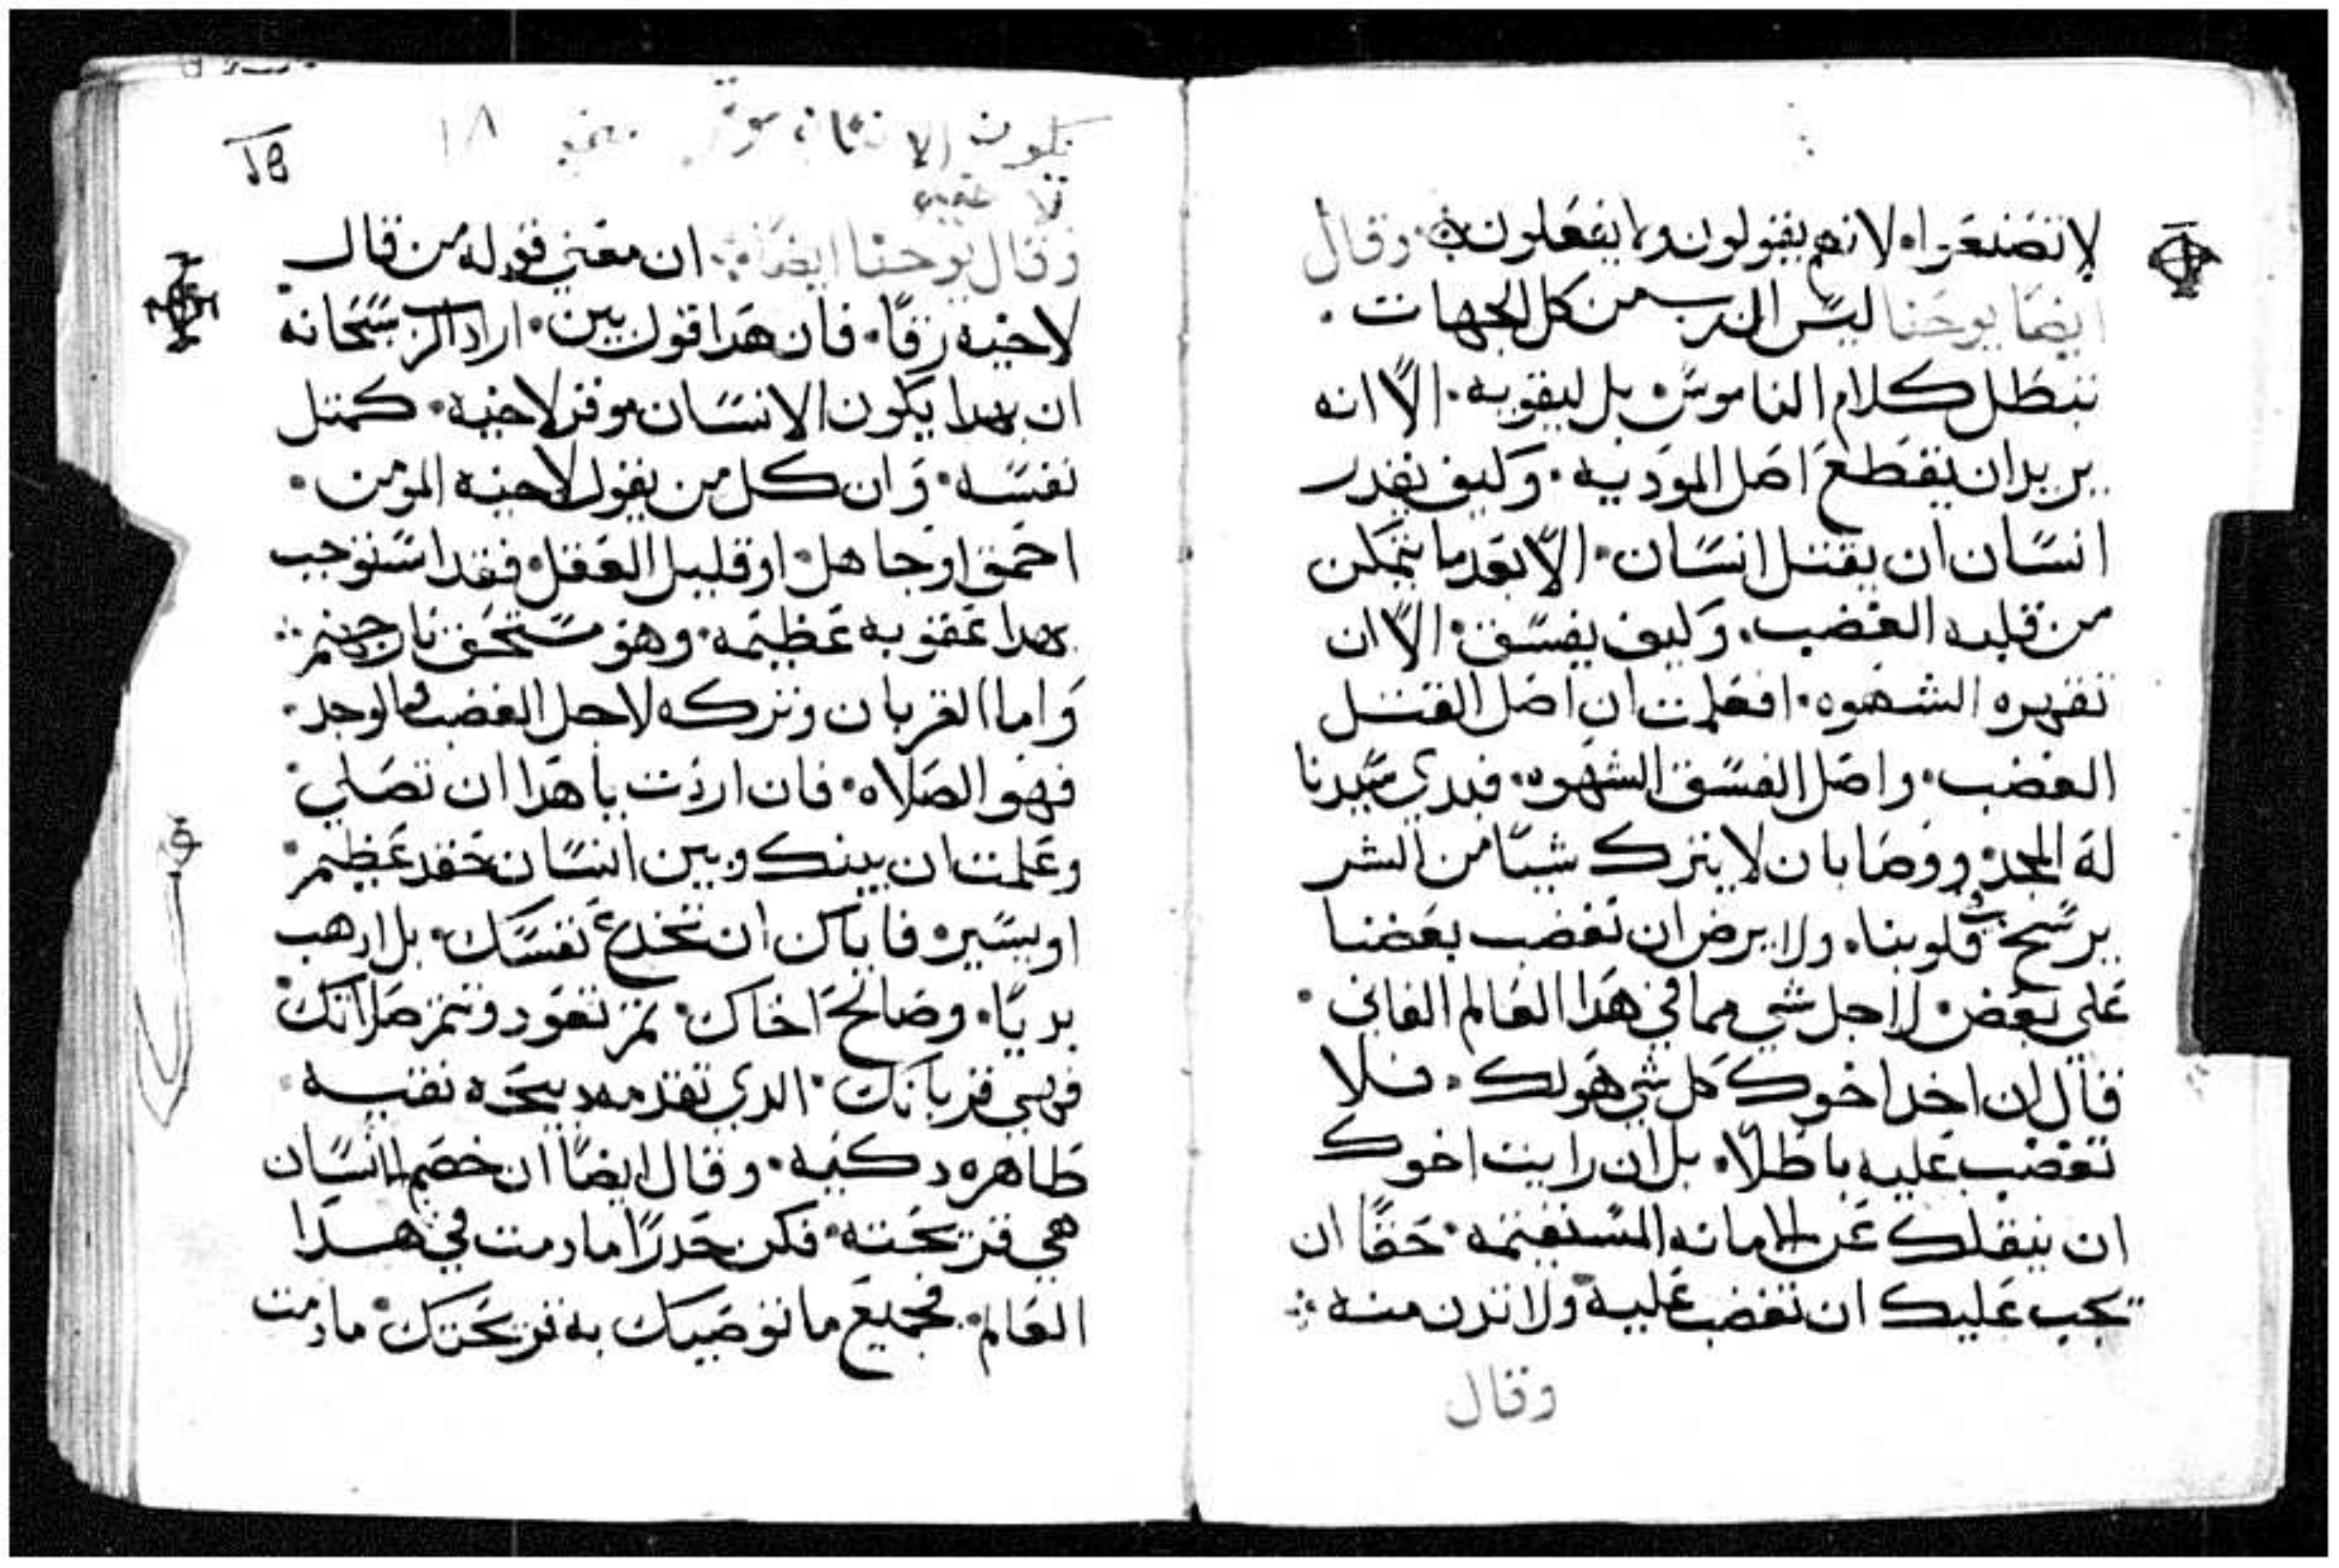 لا تصنعوا۰ لانهم يقولون ولا يفعلون۰ وقال
ايضا يوحنا ليس الرب من كل الجهات ۰
نبطل كلام الناموس۰ بل ليقويه۰ الاّ انه
يريد ان يقطع اصل الموديه۰ وكيف يقدر
انسان ان يقتل انسان۰ الاّ بعد ما يتمكن
من قلبه الغضب۰ وكيف يفسق۰ الاّ ان
تقهره الشهوه۰ افعلمت ان اصل القتل
الغضب۰ واصل الفسق الشهوه۰ فبدي سيدنا
له المجد۰ ووصا بان لا يترك شيًا من الشر
يرسخ في قلوبنا۰ ولا يرض ان نغضب بعضنا
على بعض۰ لاجل شي مما في هدا العالم الفاني۰
قال ان اخد اخوك كل شي هو لك۰ فلا
تغضب عليه باطلاً۰ بل ان رايت اخوك
ان ينقلك عن الامانه المستقيمه۰ حقًا ان
يجب عليك ان تغضب عليه ولا تدن منه ۰
وقال
يكون الانسان موقر ١٨
وقال يوحنا ايضا۰ ان معني قوله من قال
لاخيه رقًا۰ فان هدا قول بين۰ اراد الرب سبحانه
ان بهدا يكون الانسان موقر لاخيه۰ كمتل
نفسه۰ وان كل من يقول لاخيه المومن۰
احمق او جاهل۰ او قليل العقل۰ فقد استوجب
بهدا عقوبه عظيمه۰ وهو مستحق نار جهنم۰
واما القربان وتركه لاجل الغضب والوجد۰
فهو الصلاه۰ فان اردت يا هدا ان تصلي۰
وعلمت ان بينك وبين انسان حقد عظيم۰
او يسير۰ فاياك ان تخدع نفسك۰ بل ادهب
بديًا۰ وصالح اخاك۰ تم تعود وتتم صلاتك۰
فهي قربانك۰ الدي تقدمه دبيحه نقيه۰
طاهره دكيه۰ وقال ايضًا ان خصم الانسان
هي قريحته۰ فكن حدرًا ما دمت في هدا
العالم۰ فجميع ما توصيك به قريحتك۰ ما دمت